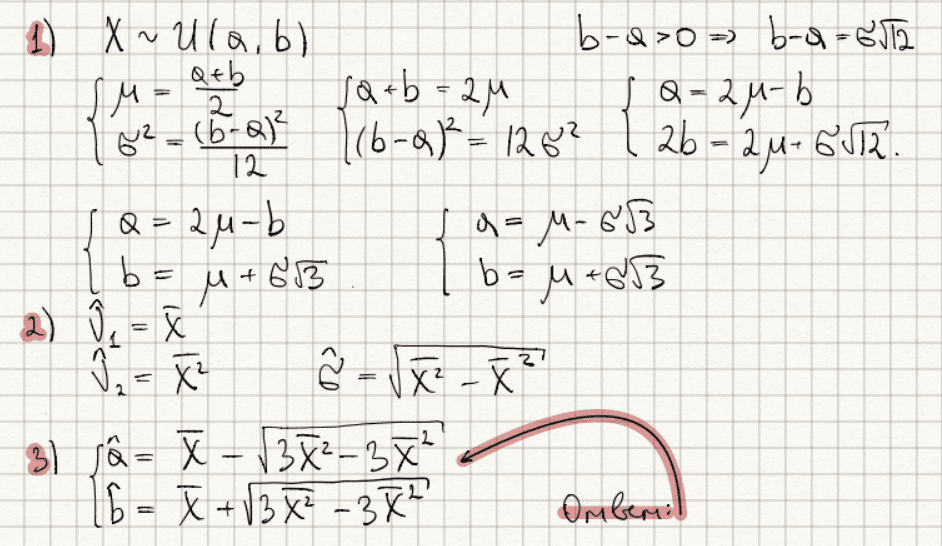 1) X ~ U(a, b) b-a>0 ⇒ b-a=σ√12
{ μ = (a+b)/2 { a+b = 2μ { a = 2μ-b
{ σ² = (b-a)²/12 { (b-a)² = 12σ² { 2b = 2μ+σ√12.
{ a = 2μ-b { a = μ-σ√3
{ b = μ+σ√3. { b = μ+σ√3
2) ν̂₁ = X̄
ν̂₂ = X̄² σ̂ = √(X̄² - X̄²)
3) { â = X̄ - √(3X̄² - 3X̄²)
{ b̂ = X̄ + √(3X̄² - 3X̄²) Ответ: